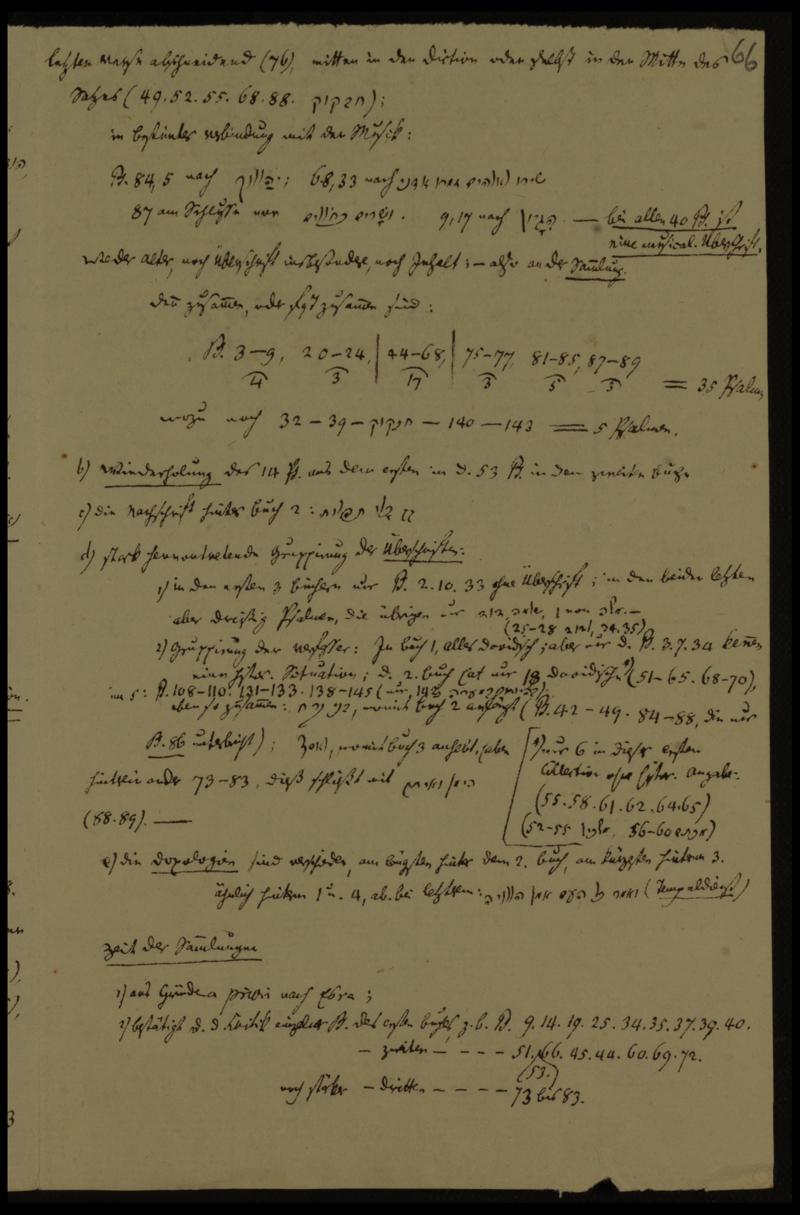 66
letzten Verse abschneidend (76), mitten in der Diction oder selbst in der Mitte des
Satzes (49. 52. 55. 68. 88. חבקוק);
in bestimmter Verbindung mit der Musik:
Ps. 84,5 nach ; 68,33 nach
87 am Schlusse vor . 9,17 nach הגיון — bei allen 40 Ps. ist
eine musical. Überschrift.
weder Alter, noch Überschrift insbesondere, noch Inhalt; — also an der Sammlung.
denn zusammen, oder fast zusammen sind:
Ps. 3–9, 20–24, | 44–68, | 75–77, 81–85, 87–89
4 3 17 3 5 3 = 35 Psalmen,
wozu noch 32 – 39 – חבקוק – 140 – 143 = 5 Psalmen.
b) Wiederholung des 14 Ps. aus dem ersten in d. 53 Ps. in dem zweiten Buche
c) die Nachschrift hinter Buch 2: תפלות
d) stark hervortretende Gruppirung der Überschriften:
1) in den ersten 3 Büchern nur Ps. 2. 10. 33 ohne Überschrift; in den beiden letzten
aber dreißig Psalmen, die übrigen nur 1 von
(25–28 34. 35)
2) Gruppirung der Verfasser: In Buch 1, alles davidisch; aber nur d. Ps. 3. 7. 34 kennen
eine histor. Situation; d. 2. Buch hat nur 18 davidische (51–65. 68–70),
im 5: Ps. 108–110. 131–133. 138–145 (nur 142
ebenso zusammen: בני קרח, womit Buch 2 anfängt (Ps. 42–49. 84–88, die nur
Ps. 86 unterbricht); אסף, womit Buch 3 anhebt, (aber
hinter einander 73–83, diese schließt mit הימן
(88. 89). —
nur 6 in dieser ersten
Collection ohne histor. Angabe:
(55. 58. 61. 62. 64. 65)
(52–55 , 56–60 )
e) die Doxologien sind verschieden, am längsten hinter dem 2. Buch, am kürzesten hinterm 3.
ähnlich hinterm 1 u. 4, ab. bei letzterm: ואמר כל העם אמן הללויה (Tempeldienst)
Zeit der Sammlungen
1) aus Gründen a priori nach Esra;
2) bestätigt d. d. Kritik einzelner Ps. des ersten Buches, z.b. Ps. 9. 14. 19. 25. 34. 35. 37. 39. 40.
– zweiten – – – – 51. 66. 45. 44. 60. 69. 72.
(53.)
noch stärker – dritten – – – – 73 bis 83.